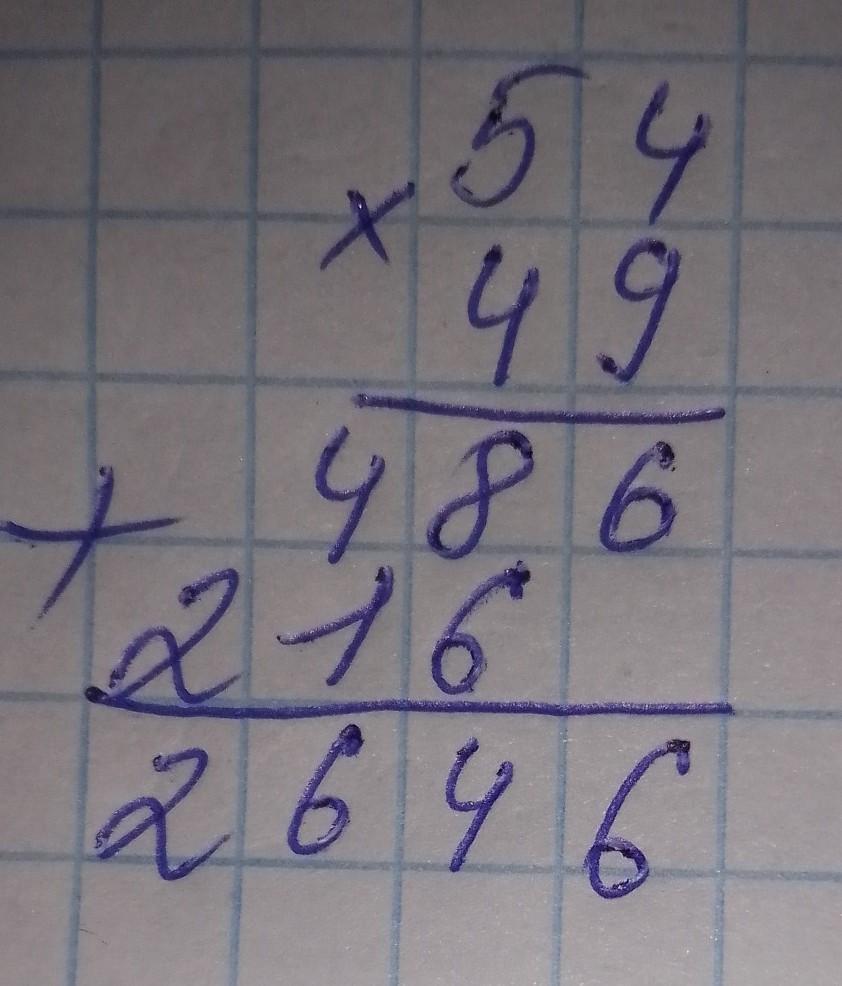 54
×
49
486
+
216
2646